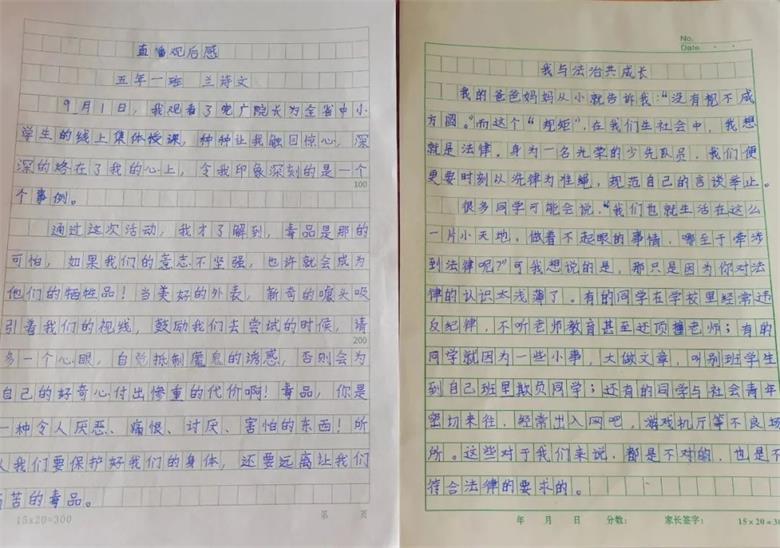 直播观后感
五年一班 兰诗文
9月1日，我观看了党广院长为全省中小
学生的线上集体授课，种种让我触目惊心，深
深的烙在了我的心上，令我印象深刻的是一个
100
个事例。
通过这次活动，我才了解到，毒品是那的
可怕，如果我们的意志不坚强，也许就会成为
他们的牺牲品！当美好的外表，新奇的噱头吸
引着我们的视线，鼓励我们去尝试的时候，请
200
多一个心眼，自觉抵制魔鬼的诱惑，否则会为
自己的好奇心付出惨重的代价啊！毒品，你是
一种令人厌恶、痛恨、讨厌、害怕的东西！所
以我们要保护好我们的身体，还要远离让我们
苦的毒品。
15×20=300 第 页
No.
Date
我与法治共成长
我的爸爸妈妈从小就告诉我：“没有规不成
方圆。”而这个“规矩”，在我们生社会中，我想
就是法律。身为一名光荣的少先队员，我们便
更要时刻以法律为准绳，规范自己的言谈举止。
很多同学可能会说，“我们也就生活在这么
一片小天地。做着不起眼的事情，哪至于牵涉
到法律呢？”可我想说的是，那只是因为你对法
律的认识太浅薄了。有的同学在学校里经常违
反纪律，不听老师教育甚至还顶撞老师；有的
同学就因为一些小事，大做文章，叫别班学生
到自己班里欺负同学；还有的同学与社会青年
密切来往，经常出入网吧，游戏机厅等不良场
所。这些对于我们来说，都是不对的，也是不
符合法律的要求的。
年 月 日 分数： 家长签字： 15×20=30